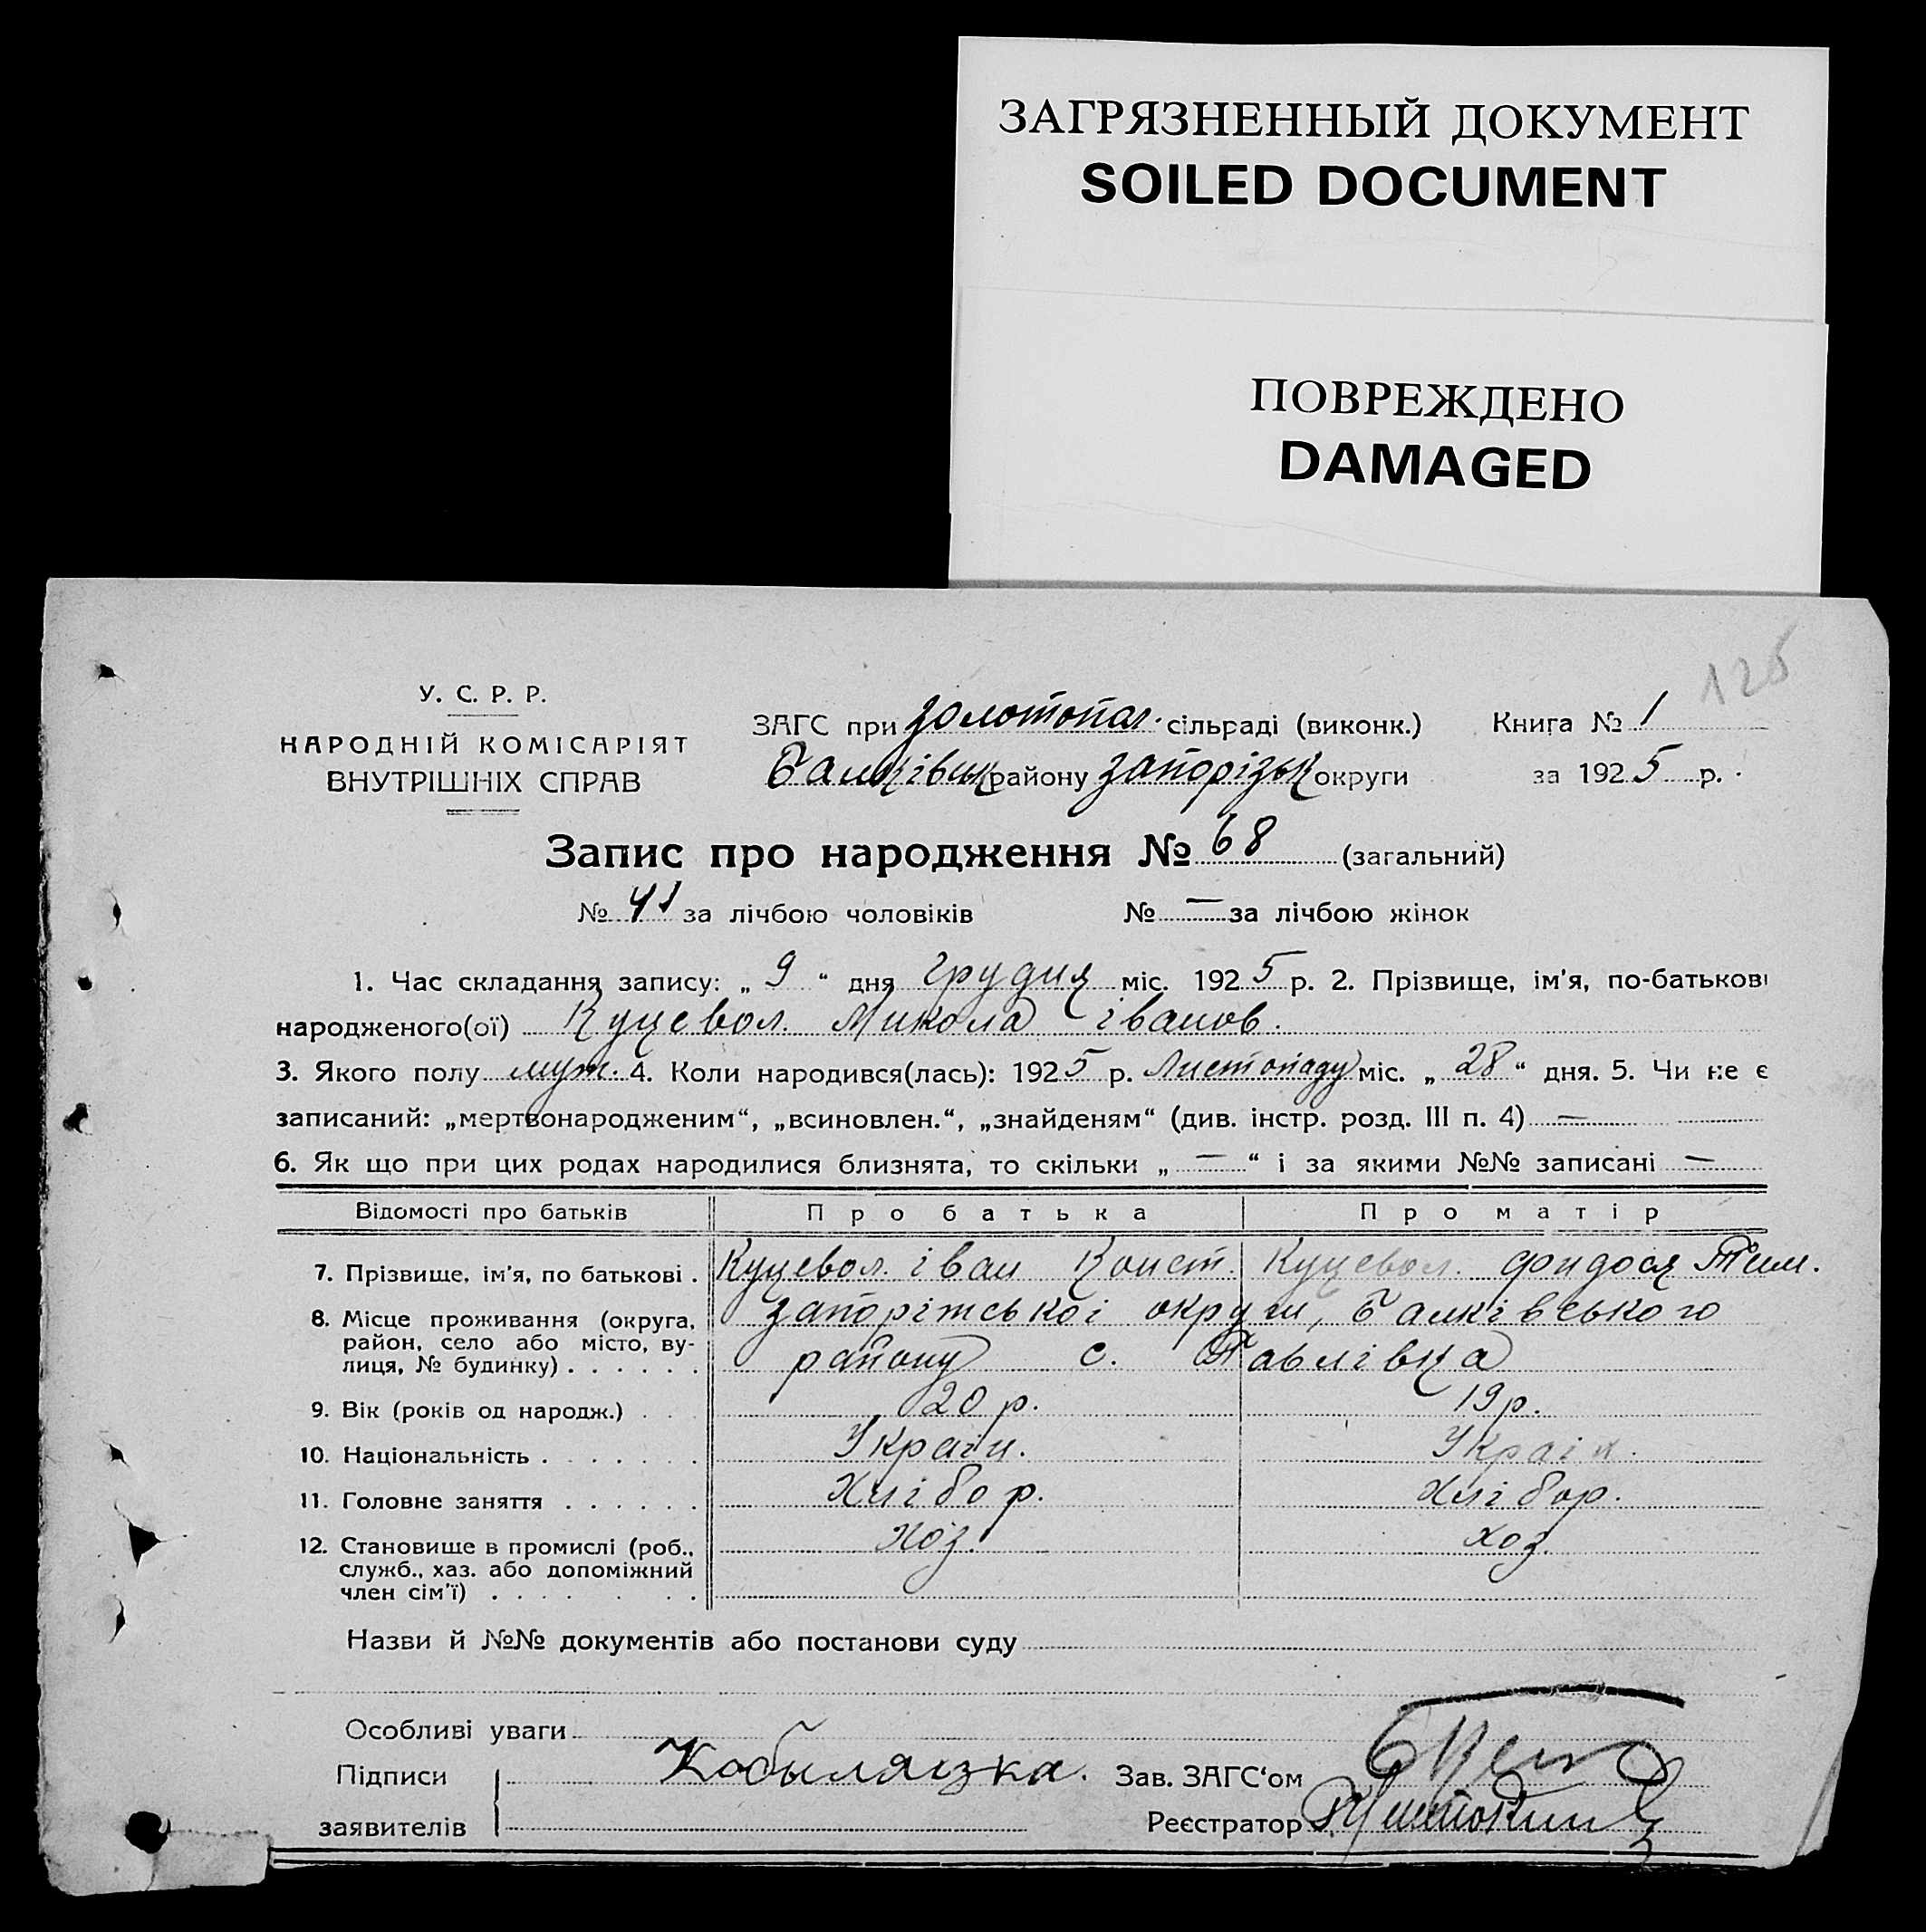 ЗАГРЯЗНЕННЫЙ ДОКУМЕНТ
SOILED DOCUMENT
ПОВРЕЖДЕНО
DAMAGED
125
У. С. Р. Р.
НАРОДНІЙ КОМІСАРІЯТ
ВНУТРІШНІХ СПРАВ
ЗАГС при Золотопол. сільраді (виконк.) Книга № 1
Балківськ району Запорізьк округи за 1925 р.
Запис про народження № 68 (загальний)
№ 41 за лічбою чоловіків № — за лічбою жінок
1. Час складання запису: „ 9 “ дня Грудня міс. 1925 р. 2. Прізвище, ім'я, по-батькові
народженого(ої) Куцевол. Микола Іванов.
3. Якого полу муж. 4. Коли народився(лась): 1925 р. Листопаду міс. „ 28 “ дня. 5. Чи не є
записаний: „мертвонародженим“, „всиновлен.“, „знайденям“ (див. інстр. розд. III п. 4) —
6. Як що при цих родах народилися близнята, то скільки „ — “ і за якими №№ записані —
Відомості про батьків Про батька Про матір
7. Прізвище, ім'я, по батькові . Куцевол. Іван Конст. Куцевол. Фидося Тим.
8. Місце проживання (округа, Запоріжської округи, Балківського
район, село або місто, ву-
лиця, № будинку) . . . . . . району с. Павлівка
9. Вік (років од народж.) . . . 20 р. 19 р.
10. Національність . . . . . . . Україн. Україн.
11. Головне заняття . . . . . . Хлібор. Хлібор.
12. Становище в промислі (роб., Хоз. Хоз.
служб., хаз. або допоміжний
член сім'ї) . . . . . . .
Назви й №№ документів або постанови суду
Особливі уваги
Підписи Кобыляцка. Зав. ЗАГС‘ом
заявителів Реєстратор